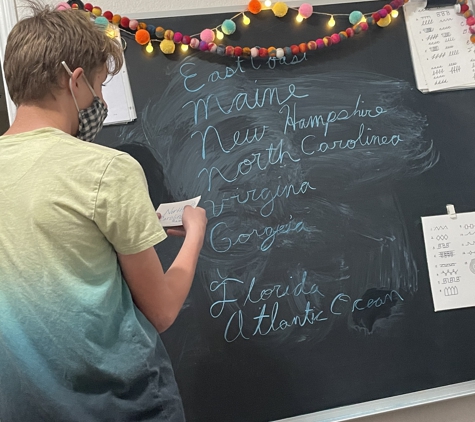 East Coast
Maine
New Hampshire
North Carolinea
Virgina
Gorgeia
Florida
Atlantic Ocean